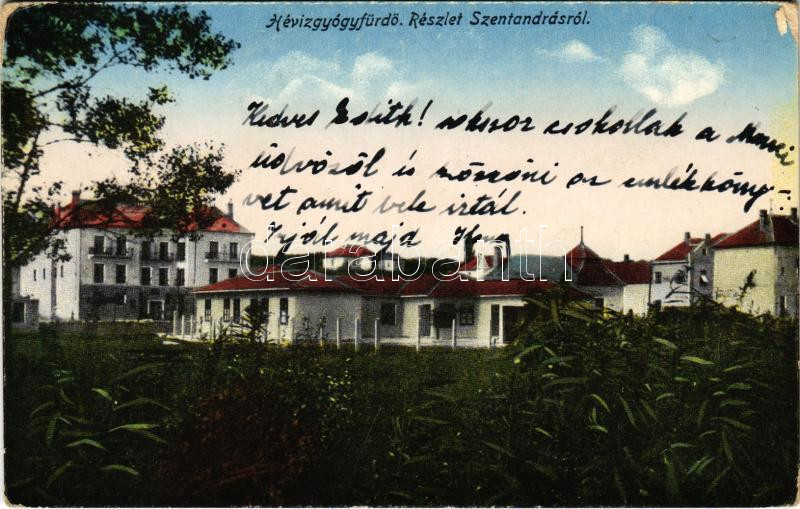 Hévizgyógyfürdő. Részlet Szentandrásról.
Kedves Edith! sokszor csokollak a Mami
üdvözöl és köszöni az emlékköny-
vet amit vele irtál.
Irjál majd Ilona
darabanth